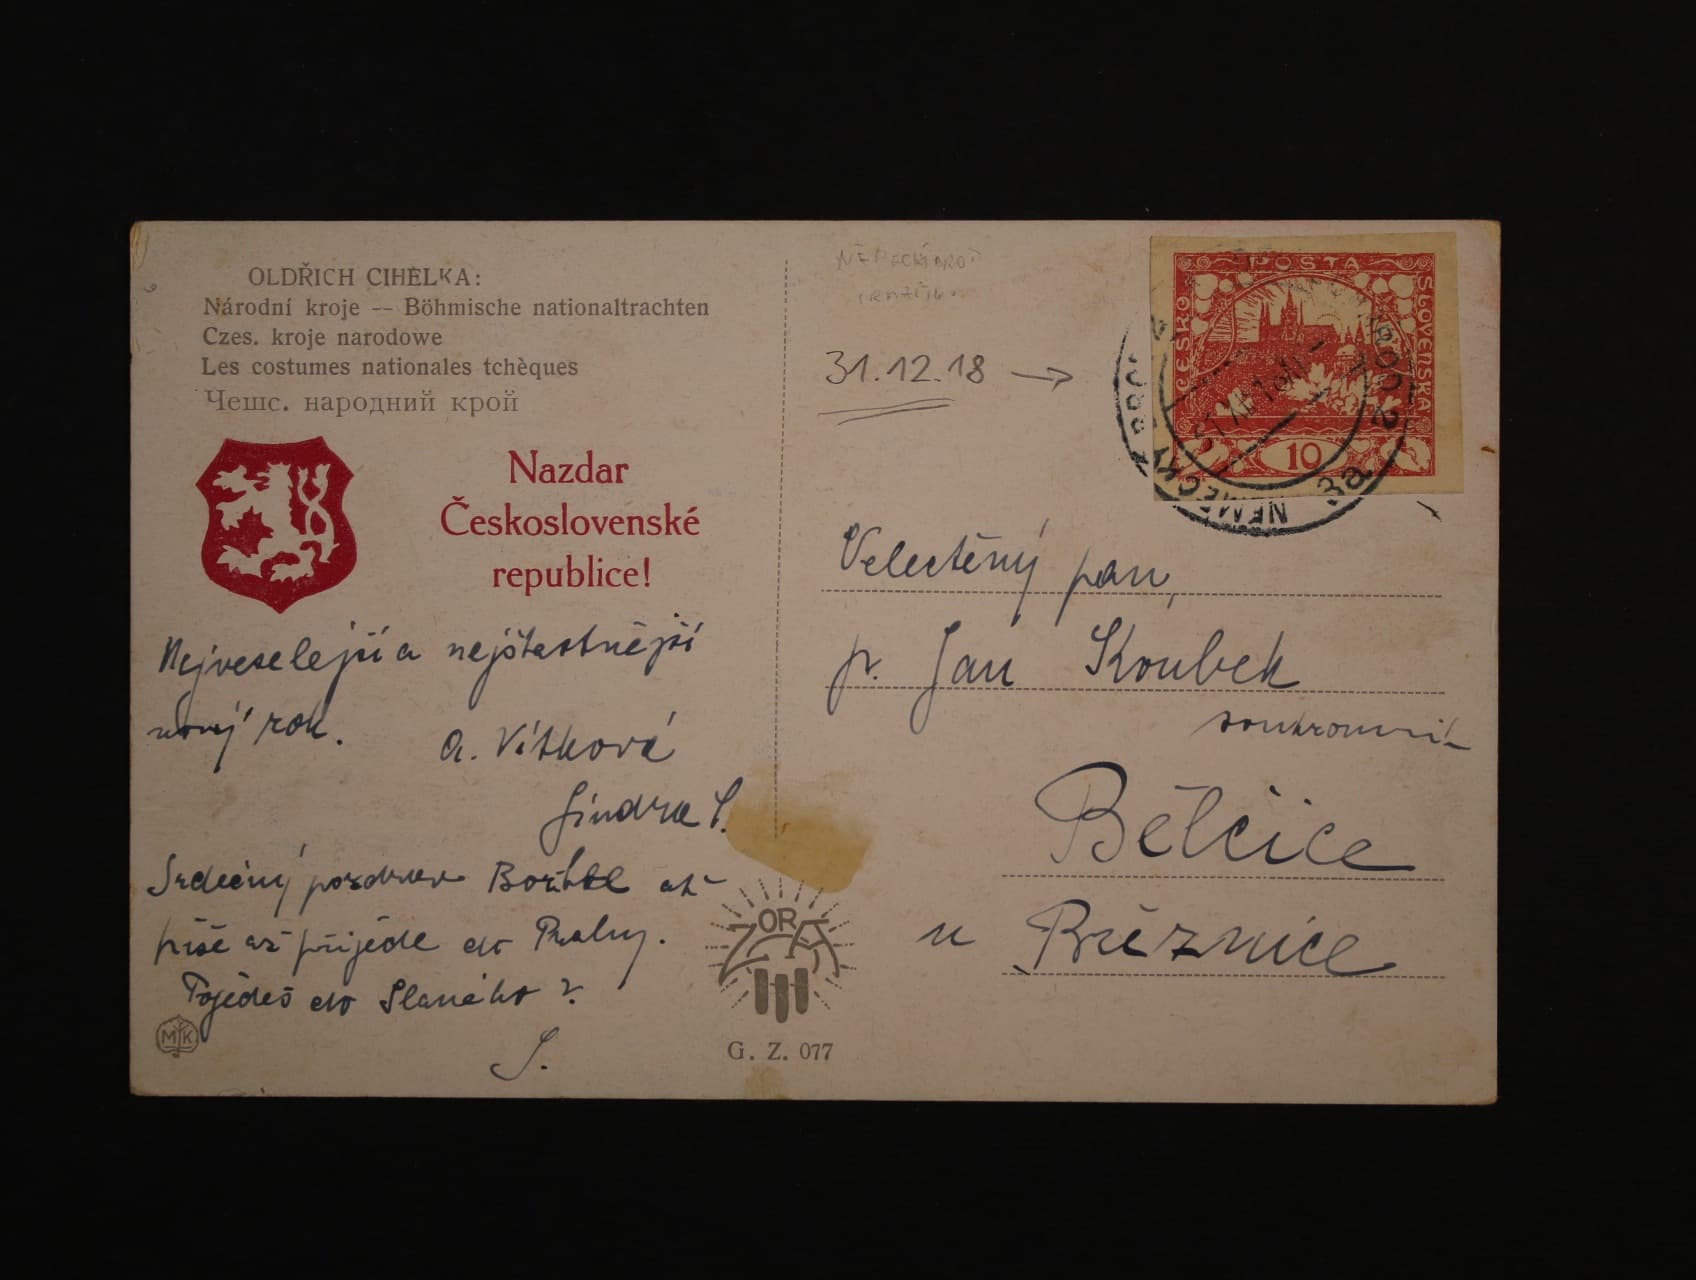 OLDŘICH CIHELKA:
Národní kroje — Böhmische nationaltrachten
Czes. kroje narodowe
Les costumes nationales tchèques
Чешс. народний крой
Nazdar
Československé
republice!
Nejveselejší a nejšťastnější
nový rok.
A. Vítková
Jindra S.
Srdečný pozdrav
píše až přijede do Prahy.
Pojedeš do Slaného?
S.
MK
ZORA
G. Z. 077
NĚMECKÝ BROD
31.12.18 →
POŠTA
ČESKO
SLOVENSKÁ
10
NĚMECKÝ BROD 2
3a
Velectěný pan,
p. Jan Koubek
Bělčice
u Březnice